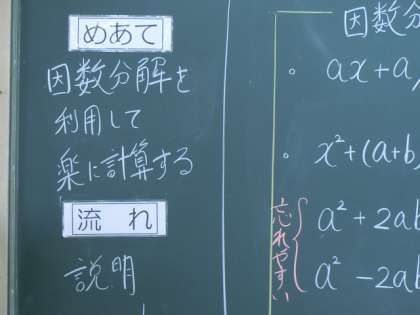 めあて
因数分解を
利用して
楽に計算する
流れ
説明
因数分
。ax+a
。x²+(a+b
忘れやすい
a²+2ab
a²-2ab